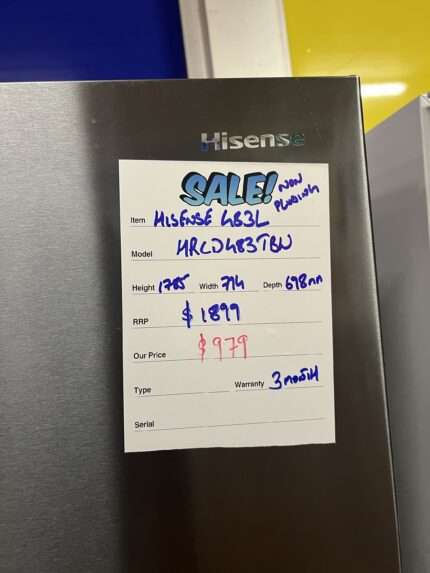 Hisense
SALE! NON PLUMBING
Item HISENSE 483L
Model HRCD483TBW
Height 1785 Width 794 Depth 698mm
RRP $1899
Our Price $979
Type Warranty 3 MONTH
Serial